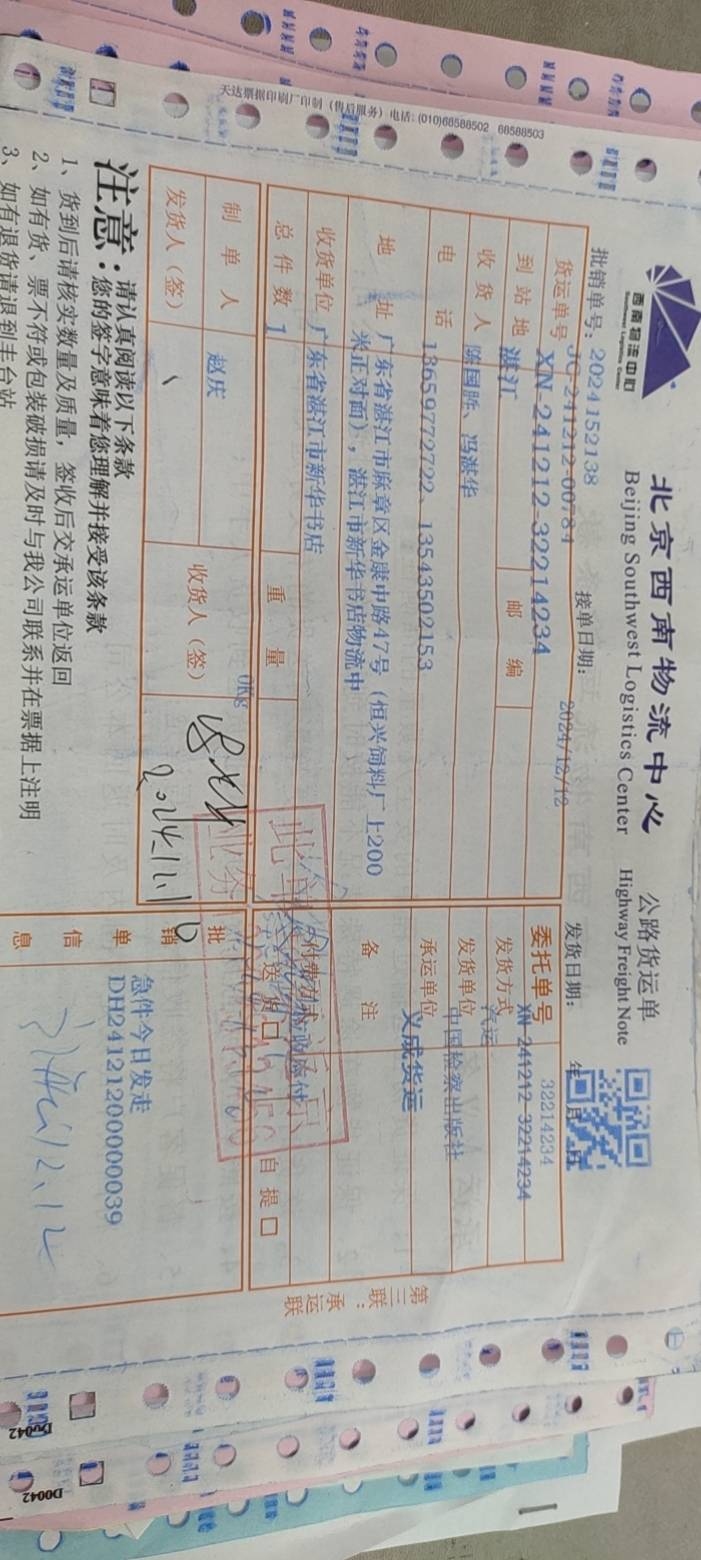 天达票据印刷厂印制（售后服务）电话：(010)68588502 68588503
西南物流中心
Southwest Logistics Center
北京西南物流中心 公路货运单
Beijing Southwest Logistics Center Highway Freight Note
批销单号：2024152138 接单日期： 2024/12/12 发货日期： 年 月 日
JC-241212-00784
货运单号 XN-241212-32214234
委托单号 32214234
XN-241212-32214234
到站地 湛江 邮编
发货方式 汽运
收货人 陈国胜、冯湛华
发货单位 中国检察出版社
电话 13659772722、13543502153
承运单位 义成货运
地址 广东省湛江市麻章区金康中路47号（恒兴饲料厂上200
米正对面），湛江市新华书店物流中
备注
收货单位 广东省湛江市新华书店
付费方式
总件数 1 重量 0Kg
送货口 自提口
制单人 赵庆
发货人（签） 收货人（签）
批销单信息
急件今日发走
DH24121200000039
12.12
第三联：承运联
注意：请认真阅读以下条款
您的签字意味着您理解并接受该条款
1、货到后请核实数量及质量，签收后交承运单位返回
2、如有货、票不符或包装破损请及时与我公司联系并在票据上注明
3、如有退货请退到丰台站
D0042
D0042